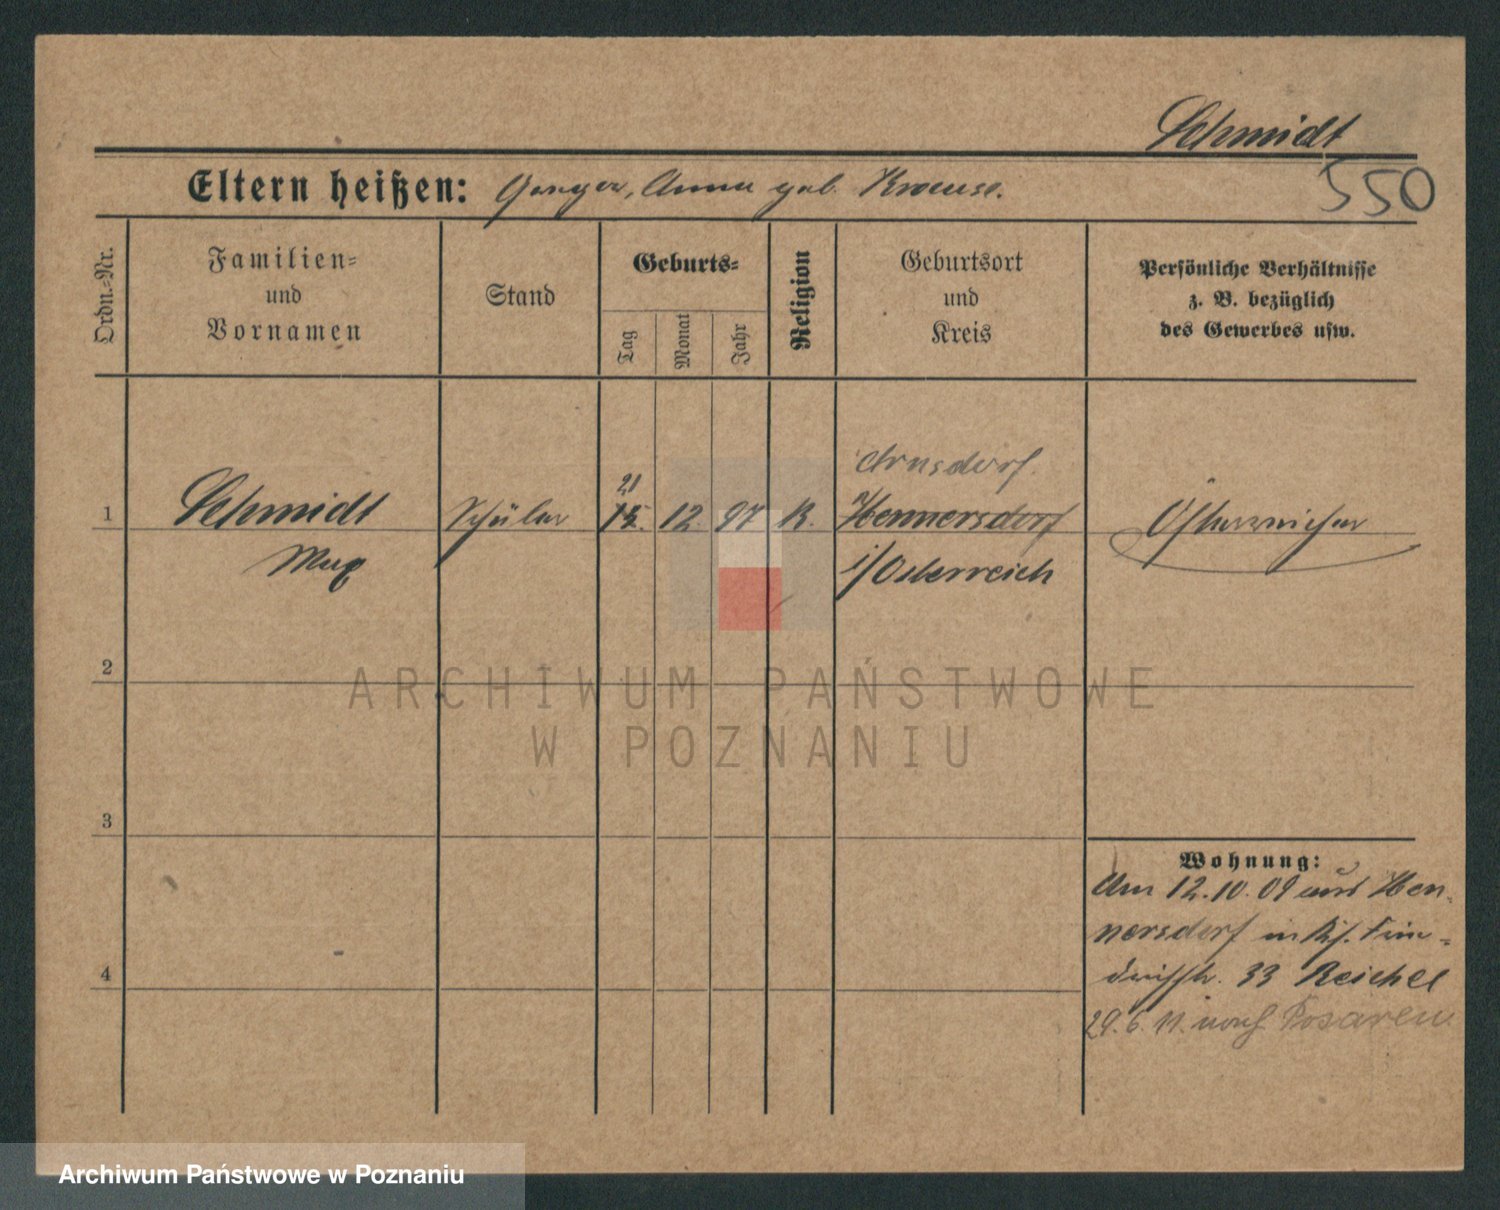 Schmidt
550
Eltern heißen: Gregor, Anna geb. Krause.
Ordn.-Nr.
Familien-
und
Vornamen
Stand
Geburts-
Tag
Monat
Jahr
Religion
Geburtsort
und
Kreis
Persönliche Verhältnisse
z. B. bezüglich
des Gewerbes usw.
Arnsdorf.
21
1 Schmidt Schüler 15. 12. 97 K. Hennersdorf Österreicher
Max i/Österreich
2
ARCHIWUM PAŃSTWOWE
W POZNANIU
3
Wohnung:
Am 12.10.09 aus Hen-
nersdorf
33 Reichel
4
29.6.11. nach
Archiwum Państwowe w Poznaniu